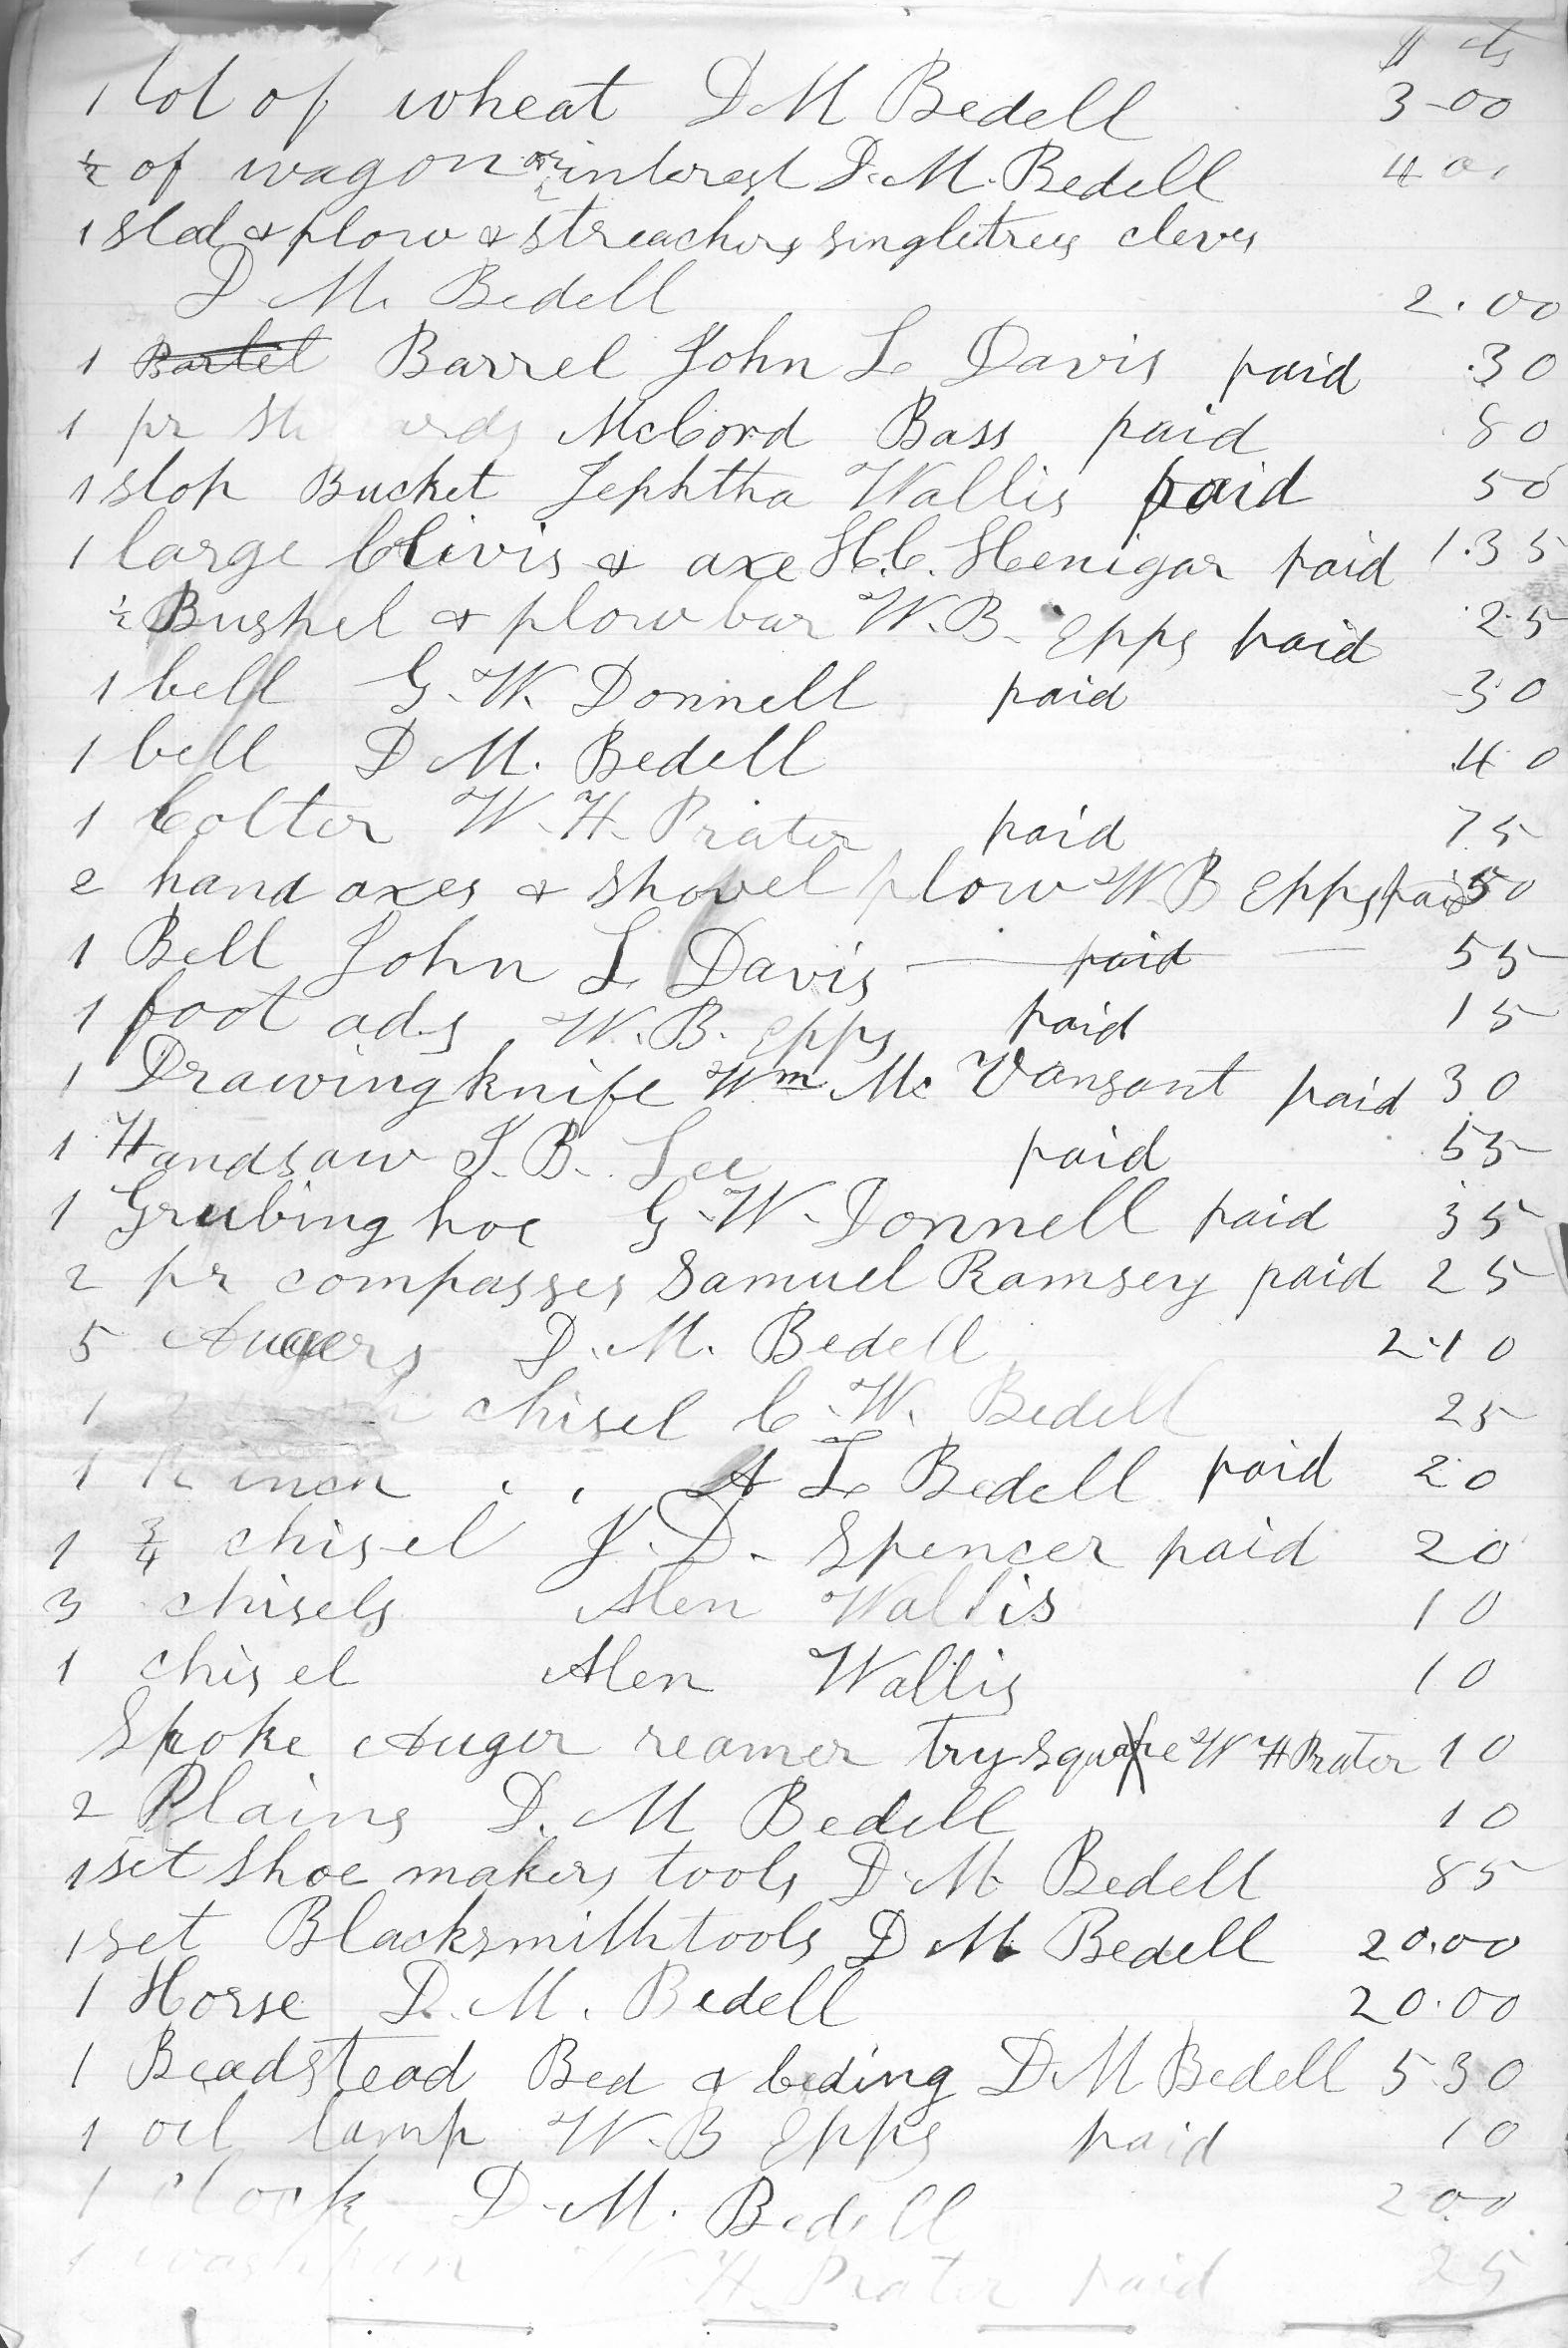 $ cts
1 lot of wheat D M Bedell 3-00
½ of wagon or interest D. M. Bedell 4 0
1 sled & plow & streachers singletrees cleves
D. M. Bedell 2.00
1 Barrel John L Davis paid .30
1 pr McCord Bass paid 80
1 slop Bucket Jephtha Wallis paid 50
1 large Clivis & axe H.C. Henigar paid 1.35
½ Bushel & plow bar W. B. Epps paid .25
1 bell G. W. Donnell paid 30
1 bell D M. Bedell .40
1 Colter W. H. Prater paid 75
2 hand axes & shovel plow W B Epps paid 50
1 Bell John L Davis — paid — 55
1 foot ads W. B. Epps paid 15
1 Drawingknife Wm Mc Vansant paid 30
1 Handsaw J. B. Lee paid 55
1 Grubing hoe G. W. Donnell paid 35
2 pr compasses Samuel Ramsey paid 25
5 Augers D. M. Bedell 2.10
1 chisel C. W. Bedell 25
1 ½ inch , , A L Bedell paid 20
1 ¾ chisel J. D. Spencer paid 20
3 chisels Alen Wallis 10
1 chisel Alen Wallis 10
Spoke Auger reamer try square W H Prater 10
2 Plains D. M Bedell 10
1 set shoe makers tools D. M Bedell 85
1 set Blacksmith tools D M Bedell 20.00
1 Horse D. M. Bedell 20.00
1 Beadstead Bed & beding D. M Bedell 5.30
1 oil lamp W. B Epps paid 10
1 clock D. M. Bedell 2 00
1 washpan W. H. Prater paid 25